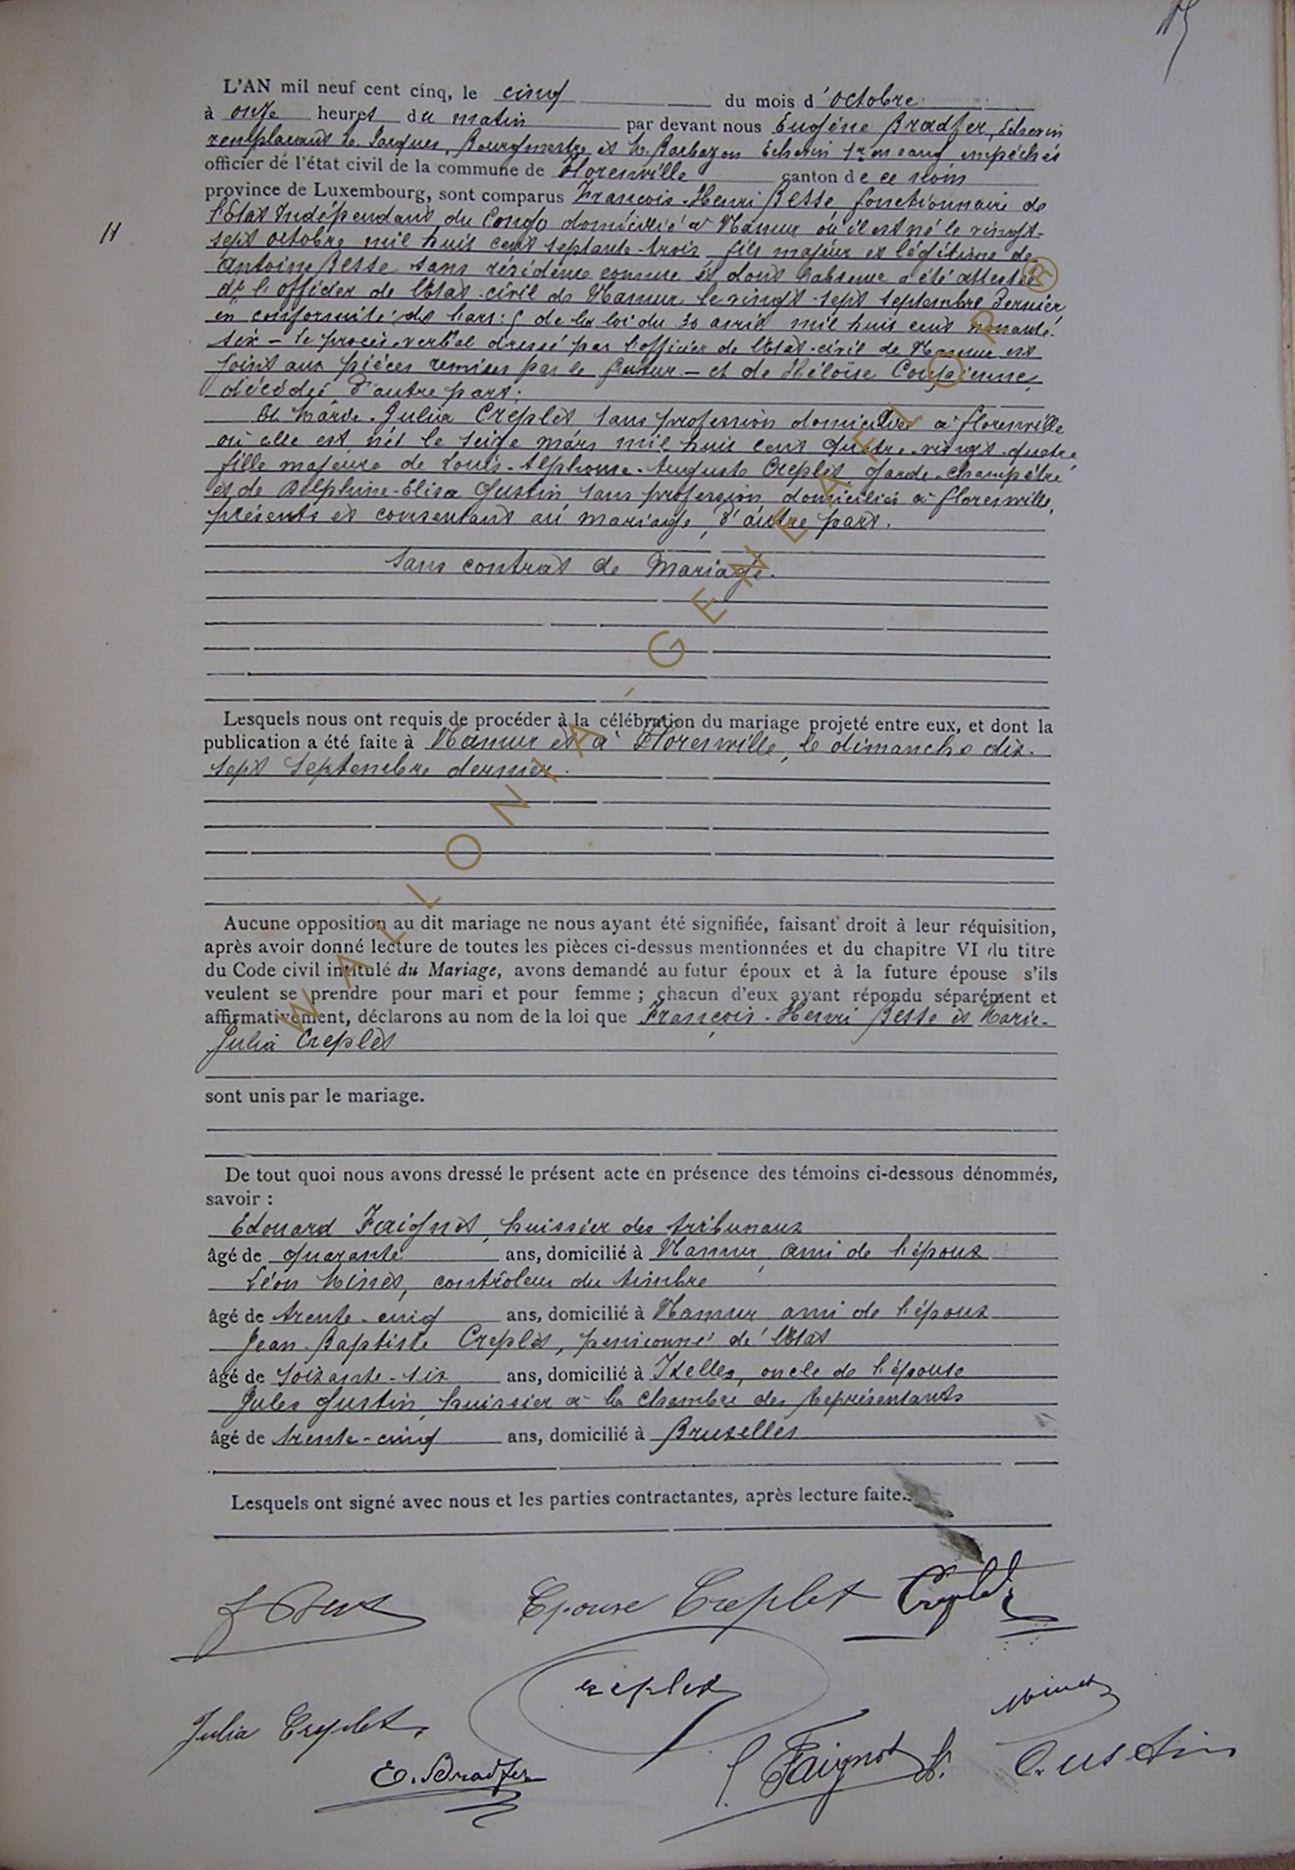 15
L'AN mil neuf cent cinq, le cinq du mois d'octobre
à onze heures du matin par devant nous Eugène Bradfer, Echevin
remplaçant M. Jacques, Bourgmestre et M. Barbazon Echevin 1er en rang empêchés
officier de l'état civil de la commune de Florenville canton de ce nom
province de Luxembourg, sont comparus François-Henri Besse fonctionnaire de
11
l'Etat Indépendant du Congo domicilié à Namur où il est né le vingt-
sept octobre mil huit cent septante-trois fils majeur et légitime de
Antoine Besse sans résidence connue et dont l'absence a été attestée
de l'officier de l'Etat-civil de Namur le vingt-sept septembre dernier
en conformité de l'art: 5 de la loi du 30 avril mil huit cent nonante-
six – le procès-verbal dressé par l'officier de l'Etat-civil de Namur est
joint aux pièces remises par le futur – et de Héloïse
décédée, d'autre part;
Et Marie-Julia Creplet sans profession domiciliée à Florenville
où elle est née le seize mars mil huit cent quatre-vingt-quatre
fille majeure de Louis-Alphonse-Auguste Creplet garde-champêtre
et de Delphine-Elisa Gustin sans profession domiciliés à Florenville,
présents et consentant au mariage, d'autre part.
Sans contrat de Mariage.
Lesquels nous ont requis de procéder à la célébration du mariage projeté entre eux, et dont la
publication a été faite à Namur et à Florenville, le dimanche dix-
sept septembre dernier.
Aucune opposition au dit mariage ne nous ayant été signifiée, faisant droit à leur réquisition,
après avoir donné lecture de toutes les pièces ci-dessus mentionnées et du chapitre VI du titre
du Code civil intitulé du Mariage, avons demandé au futur époux et à la future épouse s'ils
veulent se prendre pour mari et pour femme ; chacun d'eux ayant répondu séparément et
affirmativement, déclarons au nom de la loi que François-Henri Besse et Marie-
Julia Creplet
sont unis par le mariage.
De tout quoi nous avons dressé le présent acte en présence des témoins ci-dessous dénommés,
savoir :
Edouard Faignot, huissier des tribunaux
âgé de quarante ans, domicilié à Namur, ami de l'époux
Léon Minet, contrôleur du timbre
âgé de trente-cinq ans, domicilié à Namur, ami de l'époux
Jean-Baptiste Creplet, pensionné de l'Etat
âgé de soixante-six ans, domicilié à Ixelles, oncle de l'épouse
Jules Gustin, huissier à la Chambre des Représentants
âgé de trente-cinq ans, domicilié à Bruxelles
Lesquels ont signé avec nous et les parties contractantes, après lecture faite.
Epouse Creplet Creplet
Creplet Minet
Julia Creplet
E. Bradfer Faignot Gustin
WALLONIA-GENEAFLOR ®